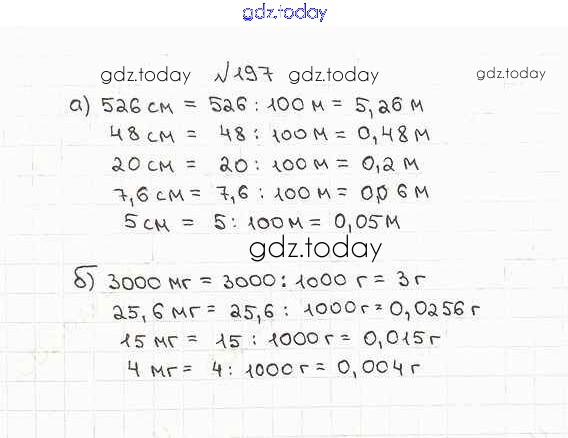 gdz.today
gdz.today №197 gdz.today gdz.today
а) 526 см = 526 : 100 м = 5,26 м
48 см = 48 : 100 м = 0,48 м
20 см = 20 : 100 м = 0,2 м
7,6 см = 7,6 : 100 м = 0,06 м
5 см = 5 : 100 м = 0,05 м
gdz.today
б) 3000 мг = 3000 : 1000 г = 3 г
25,6 мг = 25,6 : 1000 г = 0,0256 г
15 мг = 15 : 1000 г = 0,015 г
4 мг = 4 : 1000 г = 0,004 г